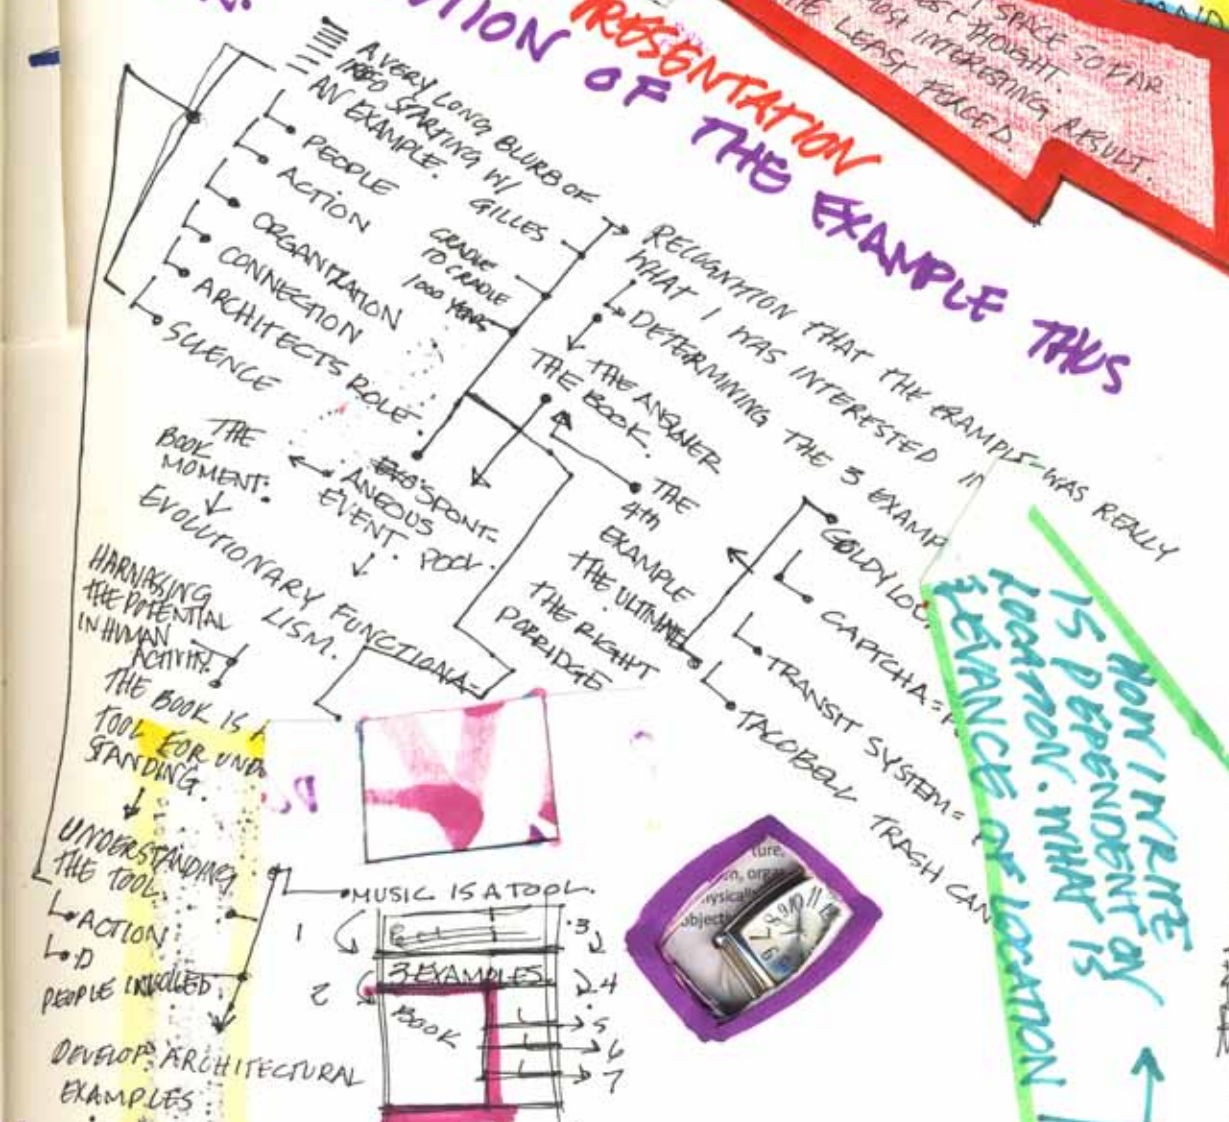 PRESENTATION
OF THE EXAMPLE THUS
SPACE SO FAR...
THOUGHT.
MOST INTERESTING RESULT.
THE LEAST FORCED
A VERY LONG BLURB OF
INFO STARTING W/
AN EXAMPLE.
PEOPLE
ACTION
ORGANIZATION
CONNECTION
ARCHITECTS ROLE
SCIENCE
GILLES
CRADLE
TO CRADLE
1000 YEARS
RECOGNITION THAT THE EXAMPLE WAS REALLY
WHAT I WAS INTERESTED IN
DETERMINING THE 3 EXAMP
THE ANSWER
THE BOOK.
THE
4th
EXAMPLE
THE ULTIMATE
THE RIGHT
PORRIDGE
GOLDYLOC
CAPTCHA =
TRANSIT SYSTEM =
TACOBELL TRASH CAN
THE
BOOK
MOMENT.
SPONT-
ANEOUS
EVENT.
POOL.
EVOLUTIONARY FUNCTIONA-
LISM.
HARNASSING
THE POTENTIAL
IN HUMAN
ACTIVITY.
THE BOOK IS A
TOOL FOR UNDE
STANDING.
UNDERSTANDING
THE TOOL.
ACTION
PEOPLE INVOLVED
DEVELOP ARCHITECTURAL
EXAMPLES
MUSIC IS A TOOL.
1
3
3 EXAMPLES
2
4
BOOK
5
6
7
ture,
n, orga
ysical
object
HOW I WRITE
IS DEPENDENT ON
LOCATION. WHAT IS
RELEVANCE OF LOCATION